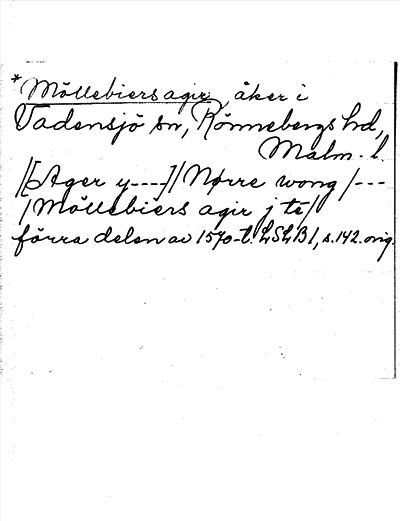 *Möllebiers agir, åker i
Vadensjö sn, Rönnebergs hd,
Malm. l.
/[Ager y----]/ Nørre wong /---
/ Möllebiers agir j te/
förra delen av 1570-t. LSLB 1, s. 142. orig.